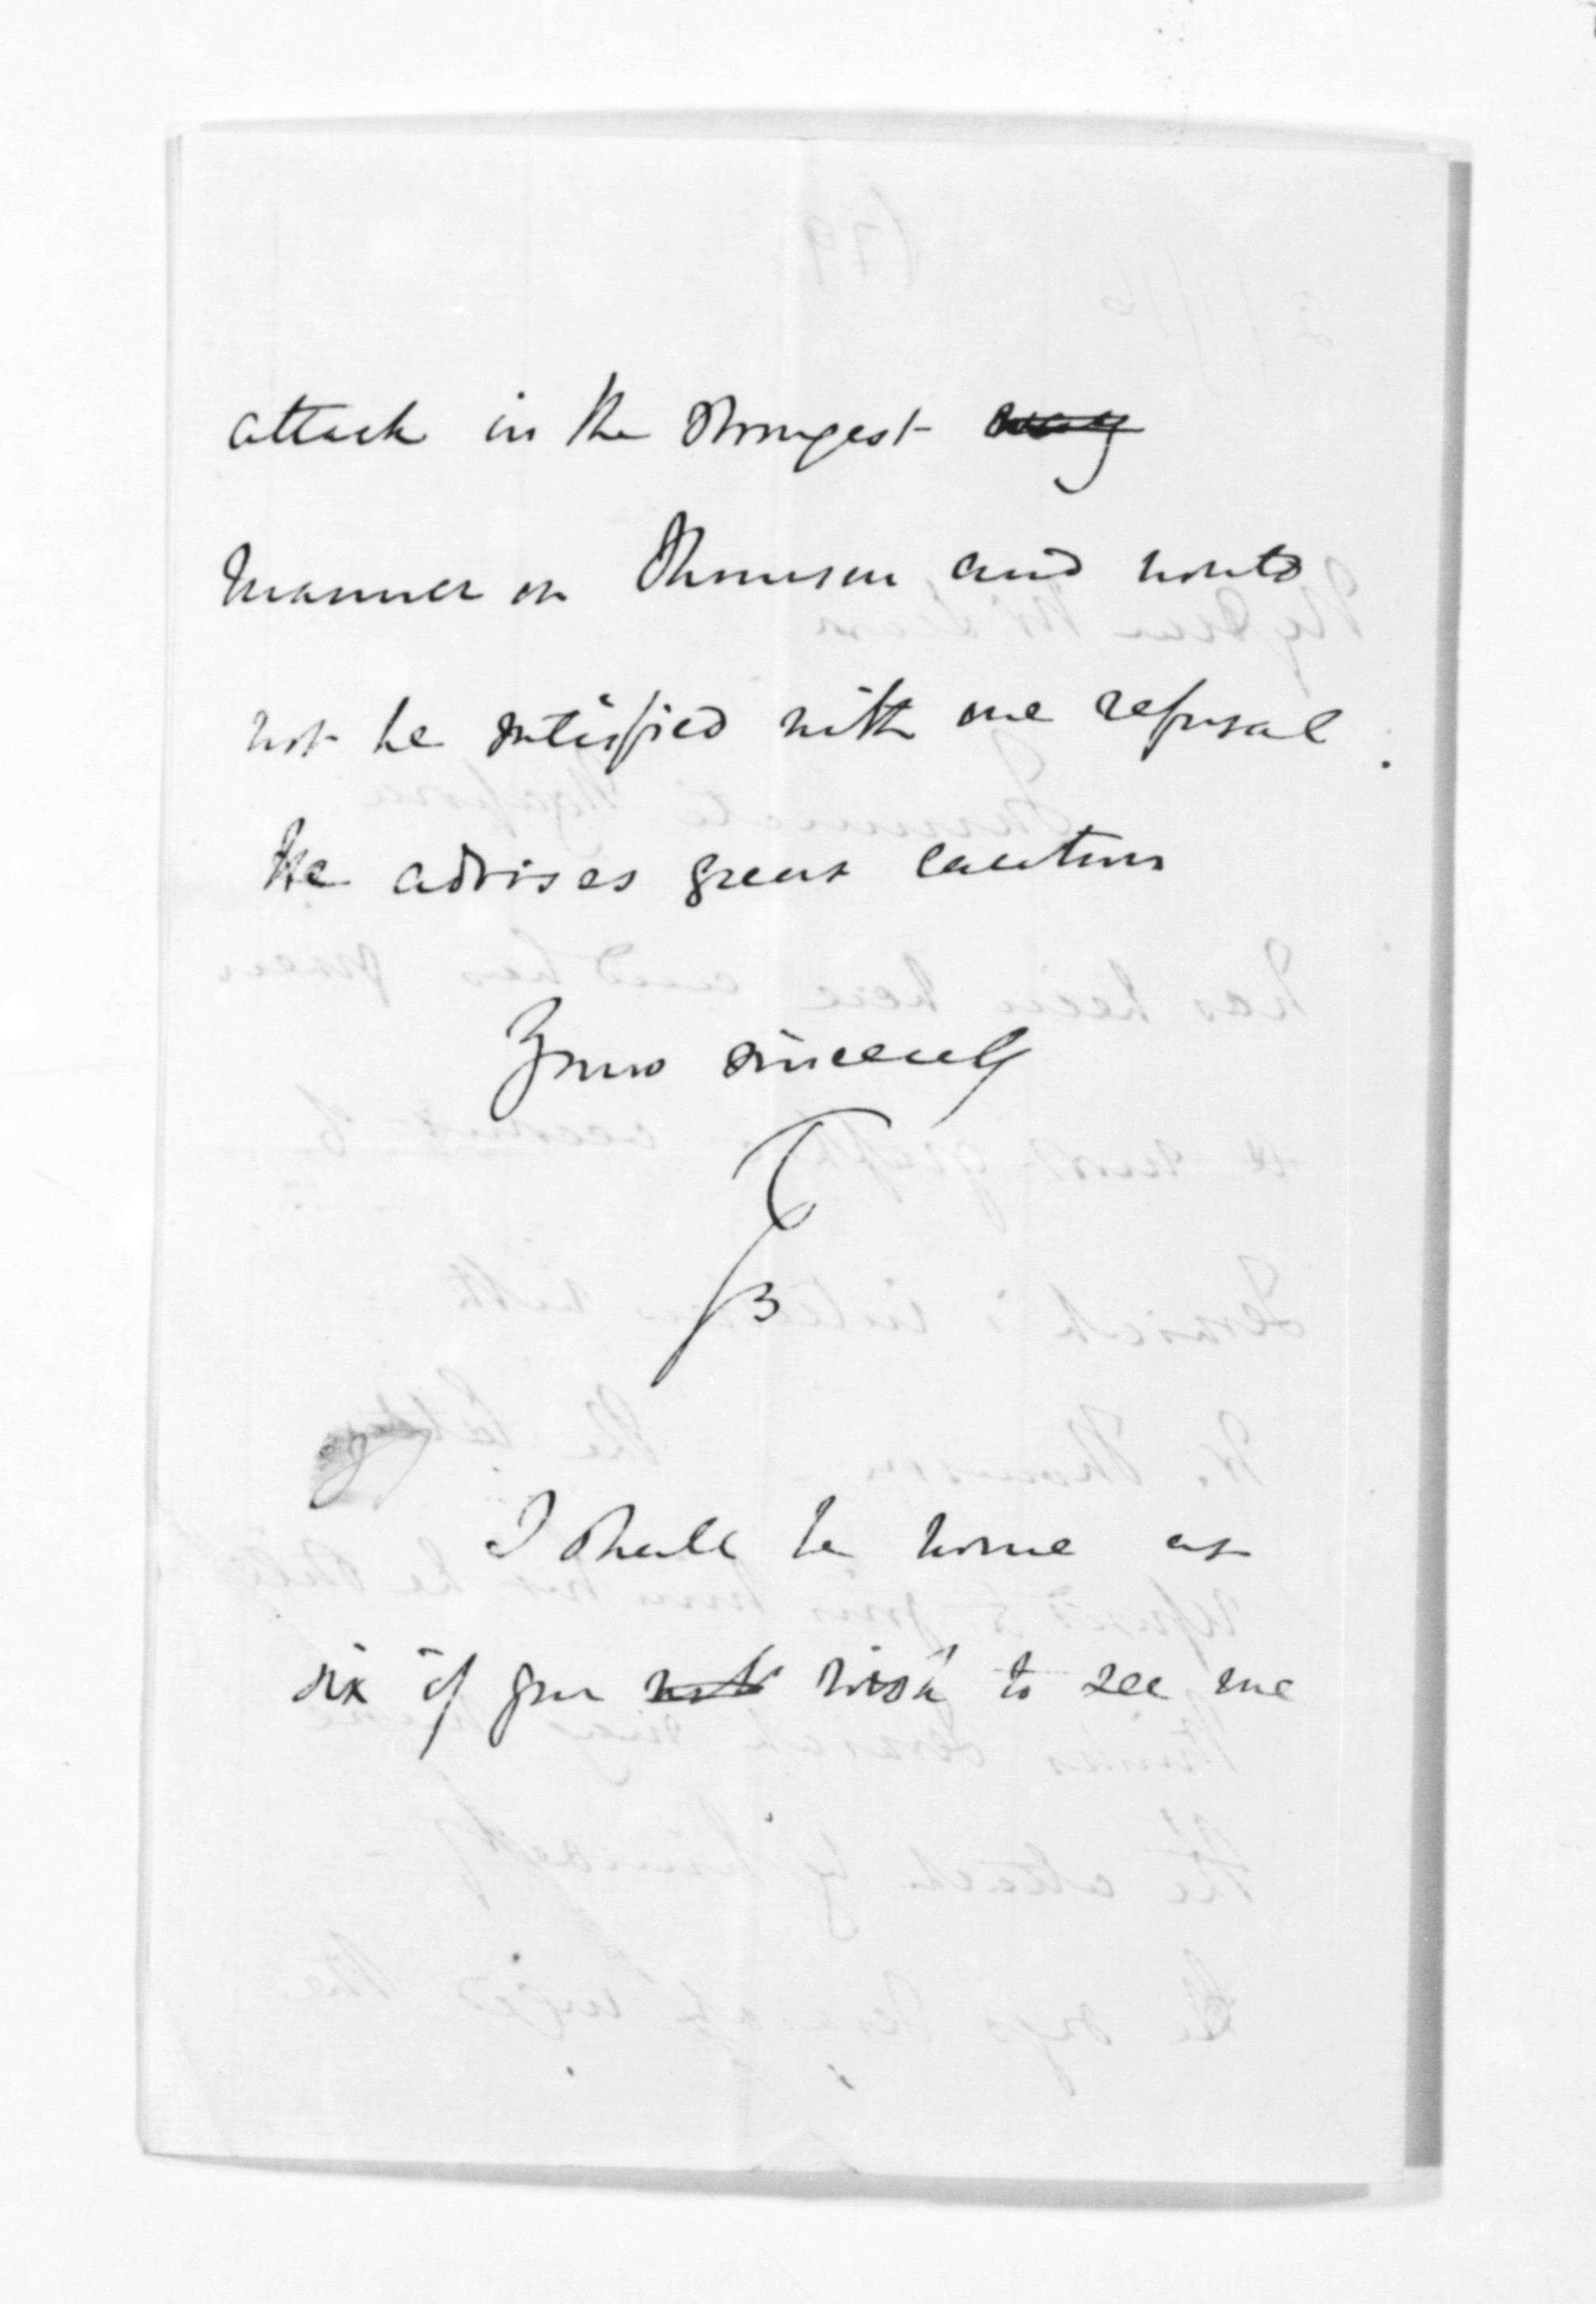 attack in the strongest ~~way~~
manner on Thomson and would
not be satisfied with one refusal.
He advises great caution
Yours sincerely
I shall be home at
six if you wish to see me